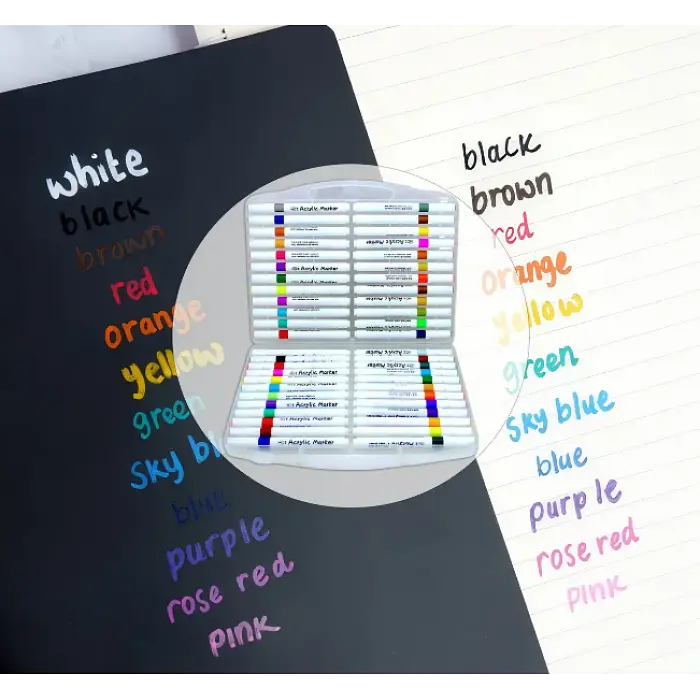 white
black
brown
red
orange
yellow
green
sky bl
blue
purple
rose red
pink
black
brown
red
orange
yellow
green
sky blue
blue
purple
rose red
pink
Acrylic Marker
Acrylic Marker
Acrylic Marker
Acrylic Marker
Acrylic Marker
Acrylic Marker